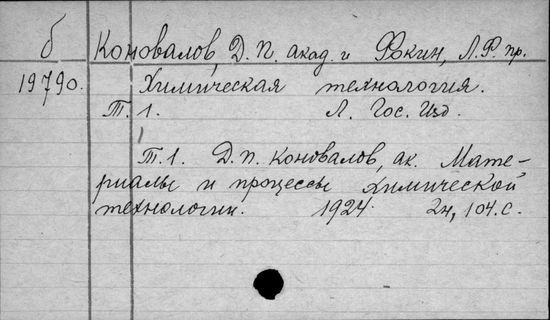 б Коновалов, Д. П. акад. и Фокин, Л. Ф. пр.
19790. Химическая технология.
Т. 1. Л. Гос. Изд.
Т. 1. Д. П. Коновалов, ак. Мате-
риалы и процессы химической
технологии. 1924 2н, 104 с.